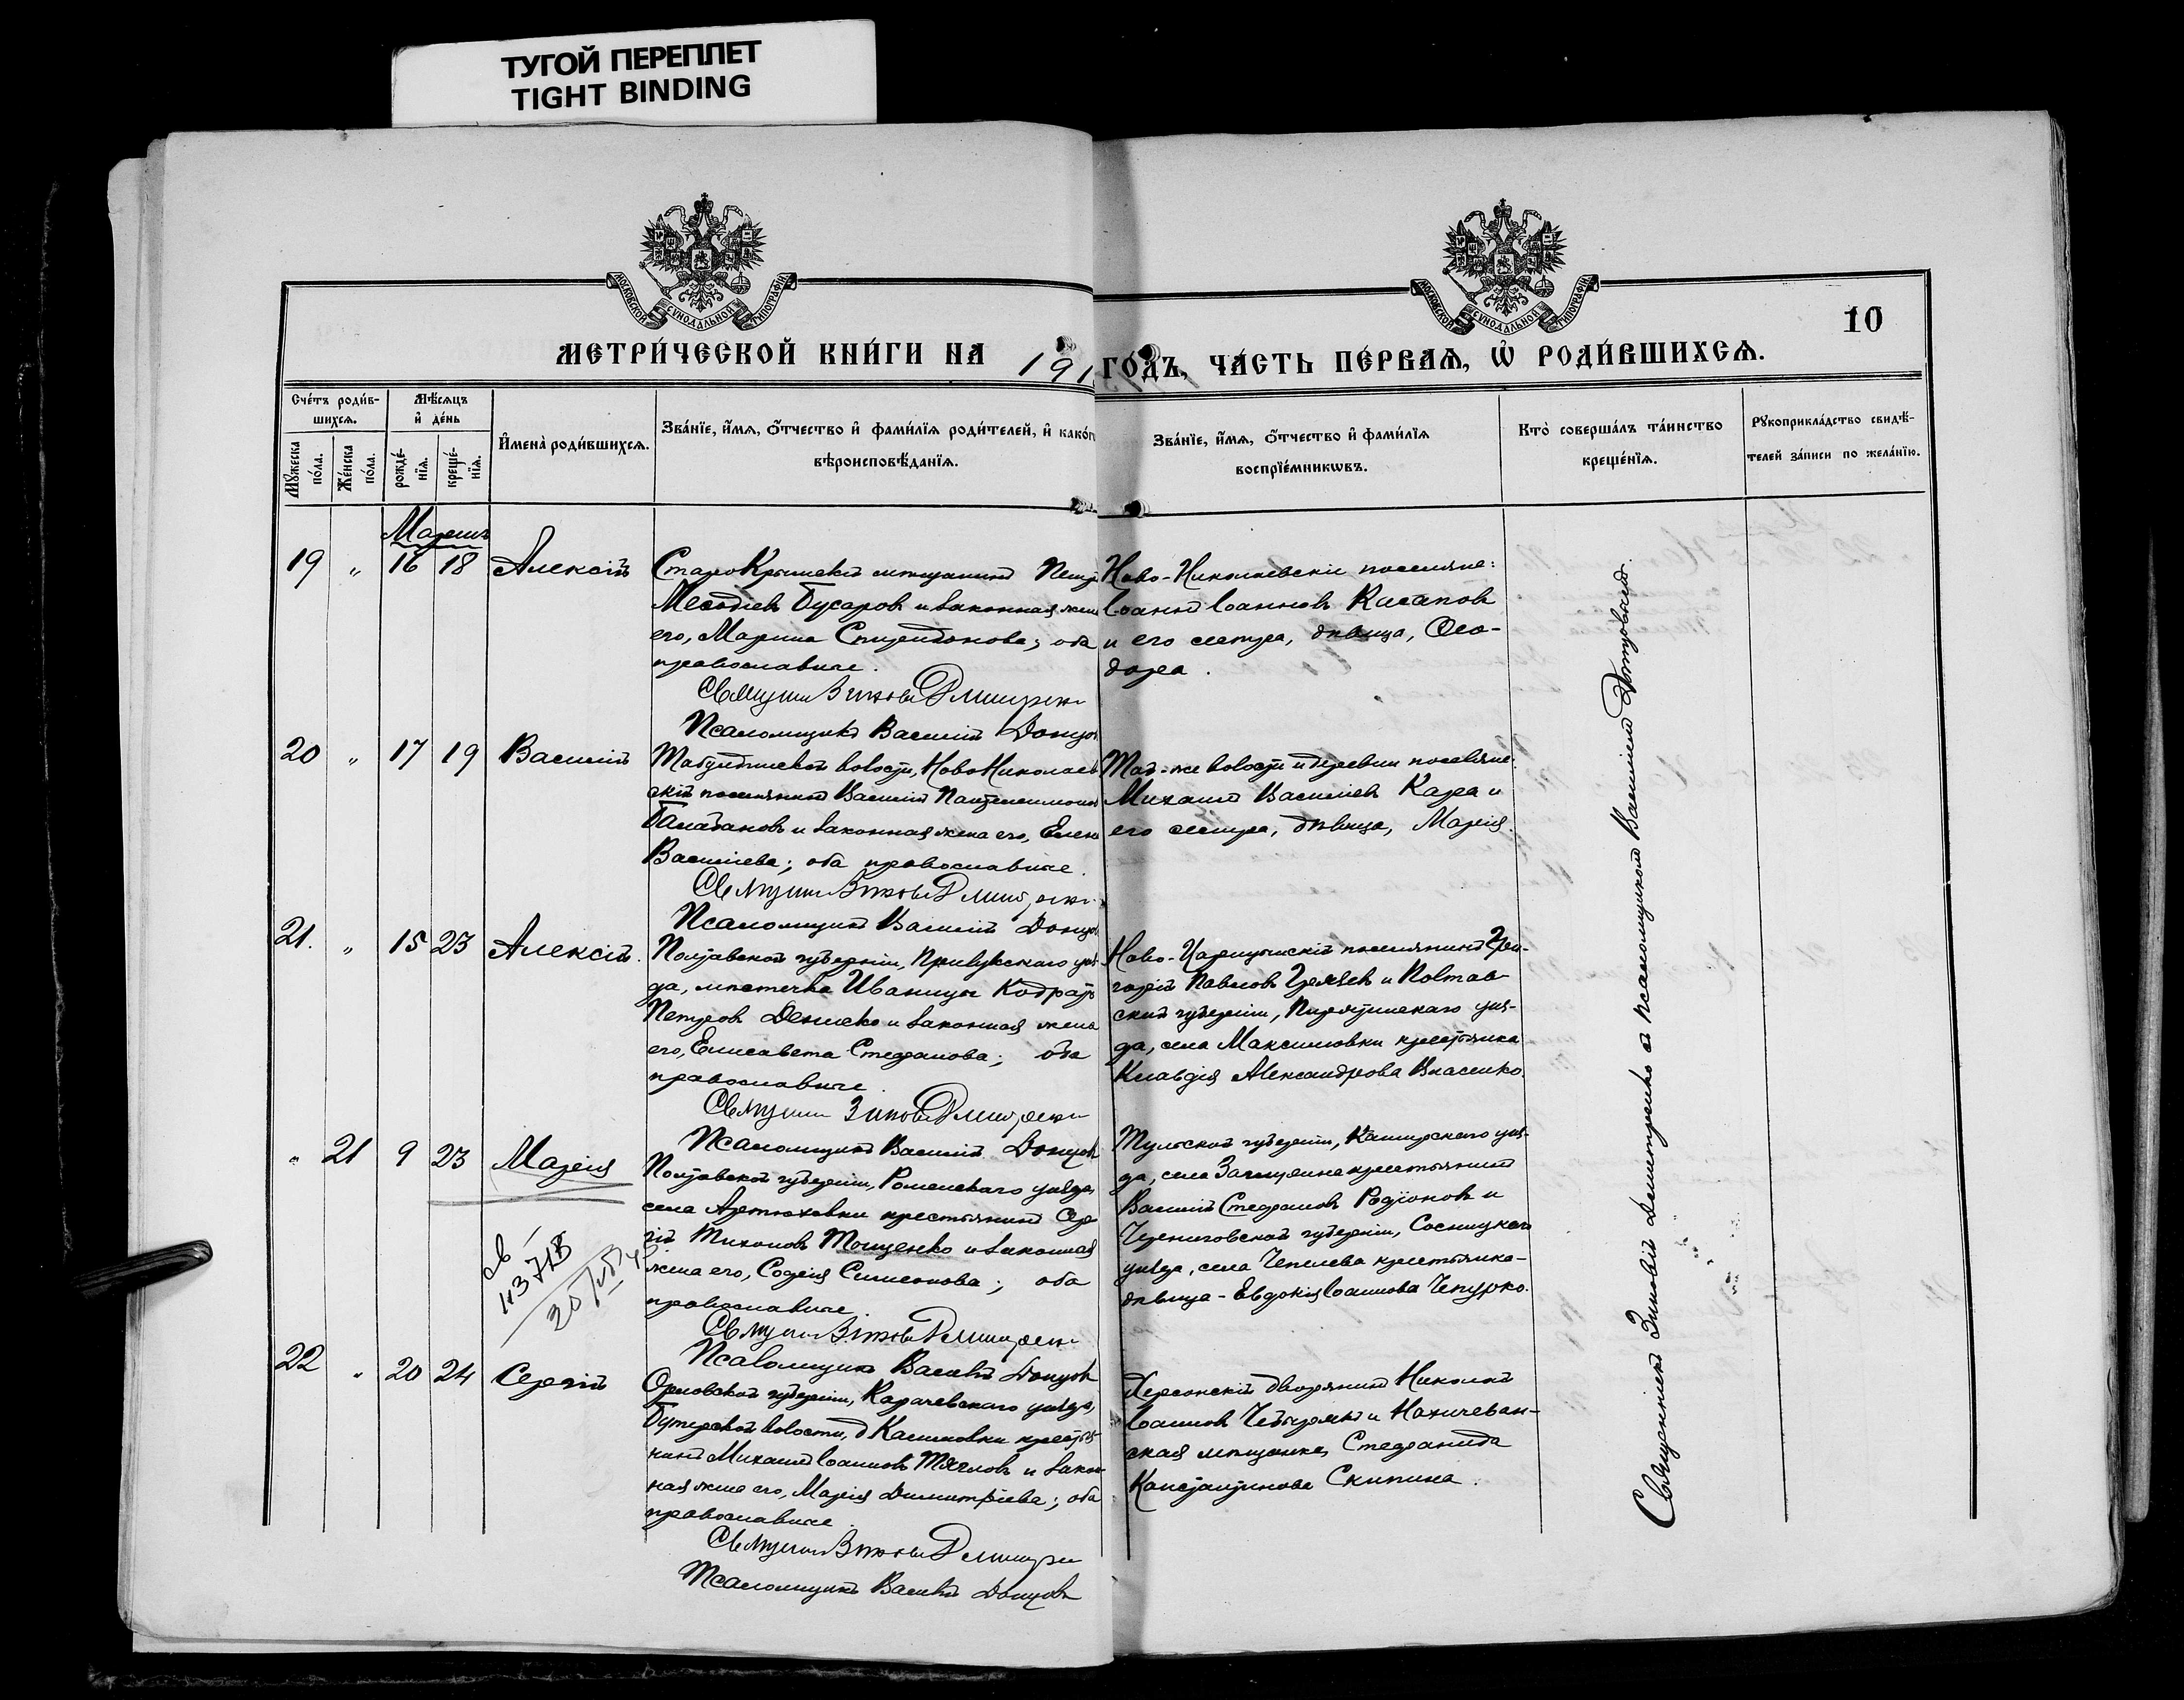 ТУГОЙ ПЕРЕПЛЕТ
TIGHT BINDING
МОСКОВСКОЙ СѴНОДАЛЬНОЙ ТИПОГРАФІИ
МОСКОВСКОЙ СѴНОДАЛЬНОЙ ТИПОГРАФІИ
10
МЕТРИ́ЧЕСКОЙ КНИ́ГИ НА 191 ГО́ДЪ, ЧА́СТЬ ПЕ́РВАЯ, Ѡ҆ РОДИ́ВШИХСЯ.
Сче́тъ роди́в-
шихся.
Мѣ́сяцъ
и҆ де́нь
Мꙋ́жеска
по́ла.
Же́нска
по́ла.
рожде́-
нїя.
креще́-
нїя.
И҆мена̀ роди́вшихся.
Зва́нїе, и҆́мя, ѻ҆́тчество и҆ фами́лїя роди́телей, и҆ како́г
вѣроисповѣ́данїя.
Зва́нїе, и҆́мя, ѻ҆́тчество и҆ фами́лїя
воспрїе́мникѡвъ.
Кто̀ соверша́лъ та́инство
креще́нїя.
Рꙋкоприкла́дство свидѣ́-
телей за́писи по жела́нїю.
Мартъ
19 " 16 18 Алексій
СтароКрымскій мѣщанинъ Петръ
Меѳодіевъ Бусаровъ и законная жена
его, Марина Спиридонова; оба
православные.
Священникъ Зиновій Димитренко
Псаломщикъ Василій Донцов
Ново-Николаевскіе поселяне:
Іоаннъ Іоанновъ Кисаповъ
и его сестра, дѣвица, Ѳео-
дора.
20 " 17 19 Василій
волости, НовоНиколаев
скій поселянинъ Василій Пантелеимонов
Балабановъ и законная жена его, Елена
Васильева; оба православные.
Священникъ Зиновій Димитренко
Псаломщикъ Василій Донцов
Той-же волости и деревни поселяне
Михаилъ Васильевъ Кара и
его сестра, дѣвица, Марія.
21. " 15 23 Алексій.
Полтавской губерніи, Прилукскаго уѣз
да, мѣстечка Иваницы Кодратъ
Петровъ Дениско и законная жена
его, Елисавета Стефанова; оба
православные.
Священникъ Зиновій Димитренко
Псаломщикъ Василій Донцовъ
Ново-Царицынскій поселянинъ Гри-
горій Павловъ и Полтав
ской губерніи, Пирятинскаго уѣз-
да, села Максимовки крестьянка
Клавдія Александрова Власенко.
" 21 9 23 Марія
Полтавской губерніи, Роменскаго уѣзда,
села Артюховки крестьянинъ Сер
гій Тихоновъ Тощенко и законная
жена его, Софія Симеонова; оба
православные.
Священникъ Зиновій Димитренко
Псаломщикъ Василій Донцовъ
Тульской губерніи, Каширскаго уѣз-
да, села крестьянинъ
Василій Стефановъ Родіоновъ и
Черниговской губерніи, Сосницкаго
уѣзда, села крестьянка-
дѣвица - Евдокія Іоаннова Чепурко.
22 " 20 24 Сергій
Орловской губерніи, Карачевскаго уѣзда,
волости, д Касиловки крестья-
нинъ Михаилъ Іоанновъ Тяглов и закон
ная жена его, Марія Димитріева; оба
православные.
Священникъ Зиновій Димитренко
Псаломщикъ Василій Донцовъ
Херсонскій дворянинъ Николай
Іоанновъ и Нахичеван-
ская мѣщанка, Стефанида
Константинова Скипина.
Священникъ Зиновій Димитренко съ псаломщикомъ Василіемъ Донцовымъ.